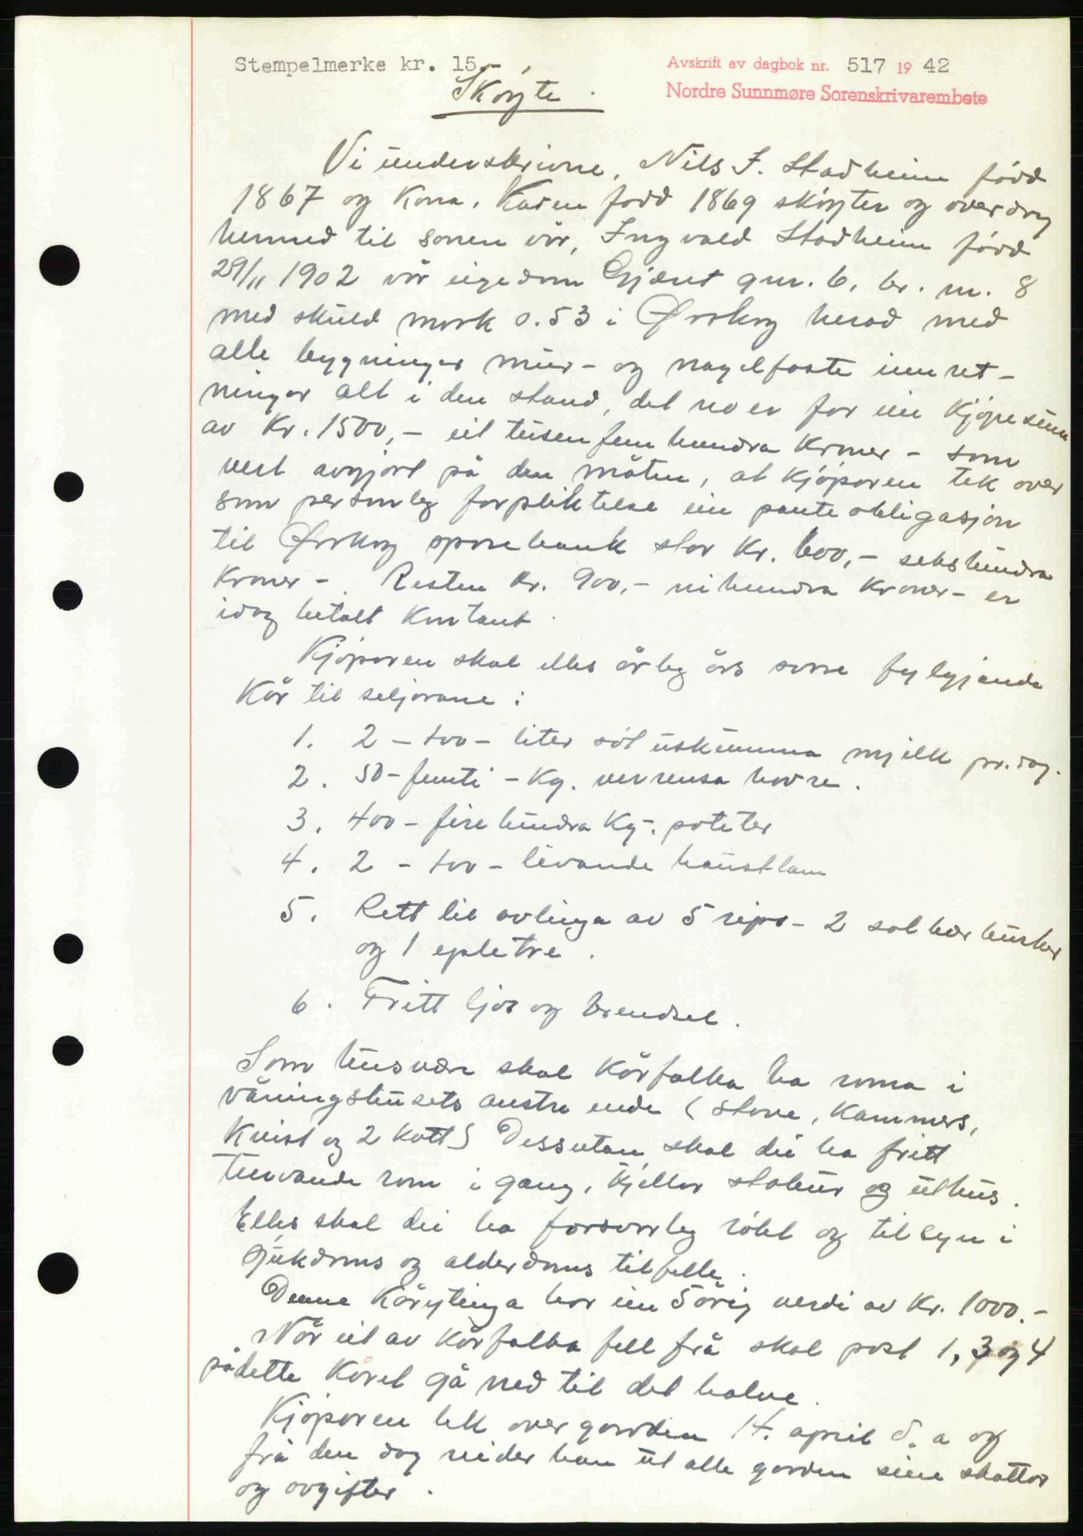 Stempelmerke kr. 15.-
Avskrift av dagbok nr. 517 1942
Nordre Sunnmøre Sorenskrivarembete
Skøyte.
Vi underskrivne, Nils I. Stadheim född
1867 og Kona, Karen född 1869 skøyter og overdrog
hermed til sonen vår, Ingvald Stadheim född
29/11 1902 vår eigedom Gjæret gnr. 6, br. nr. 8
med skuld mork 0.53 i Ørskog herad med
alle bygningar mur- og nagelfaste innret-
ningar alt i den stand, det no er for ein Kjøpesum
av Kr. 1500,- eit tusen fem hundra Kroner - som
vert avgjort på den måten, at Kjøparen tek over
som personleg forpliktelse ein pante obligasjon
til Ørskog sparebank stor Kr. 600,- sekshundra
Kroner - Resten Kr. 900,- nihundra Kroner - er
idag betalt Kontant.
Kjøparen skal elles årleg års svare fylgjande
Kår til seljarane:
1. 2 - tvo - liter söt uskumma mjelk pr. dag.
2. 50 - femti - Kg. velrensa havre.
3. 400 - fire hundra Kg. poteter
4. 2 - tvo - levande haustlam
5. Rett til avlinga av 5 rips - 2 solbær busker
og 1 epletre.
6. Fritt ljos og brendsel.
Som husvære skal Kårfolka ha roma i
våningshusets austre ende (Stove, Kammers,
Kvist og 2 Kott) Dessutan skal dei ha fritt
turvande rom i gang, Kjellar stabur og uthus.
Elles skal dei ha forsvarleg røkt og tilsyn i
sjukdoms og alderdoms tilfelle.
Denne Kårytinga har ein 5årig verdi av Kr. 1000.-
Når eit av Kårfolka fell frå skal post 1, 3 og 4
på dette Kåret gå ned til det halve.
Kjøparen tek over garden 14. april d. a og
frå den dag reider han ut alle garden sine skattar
og avgifter.